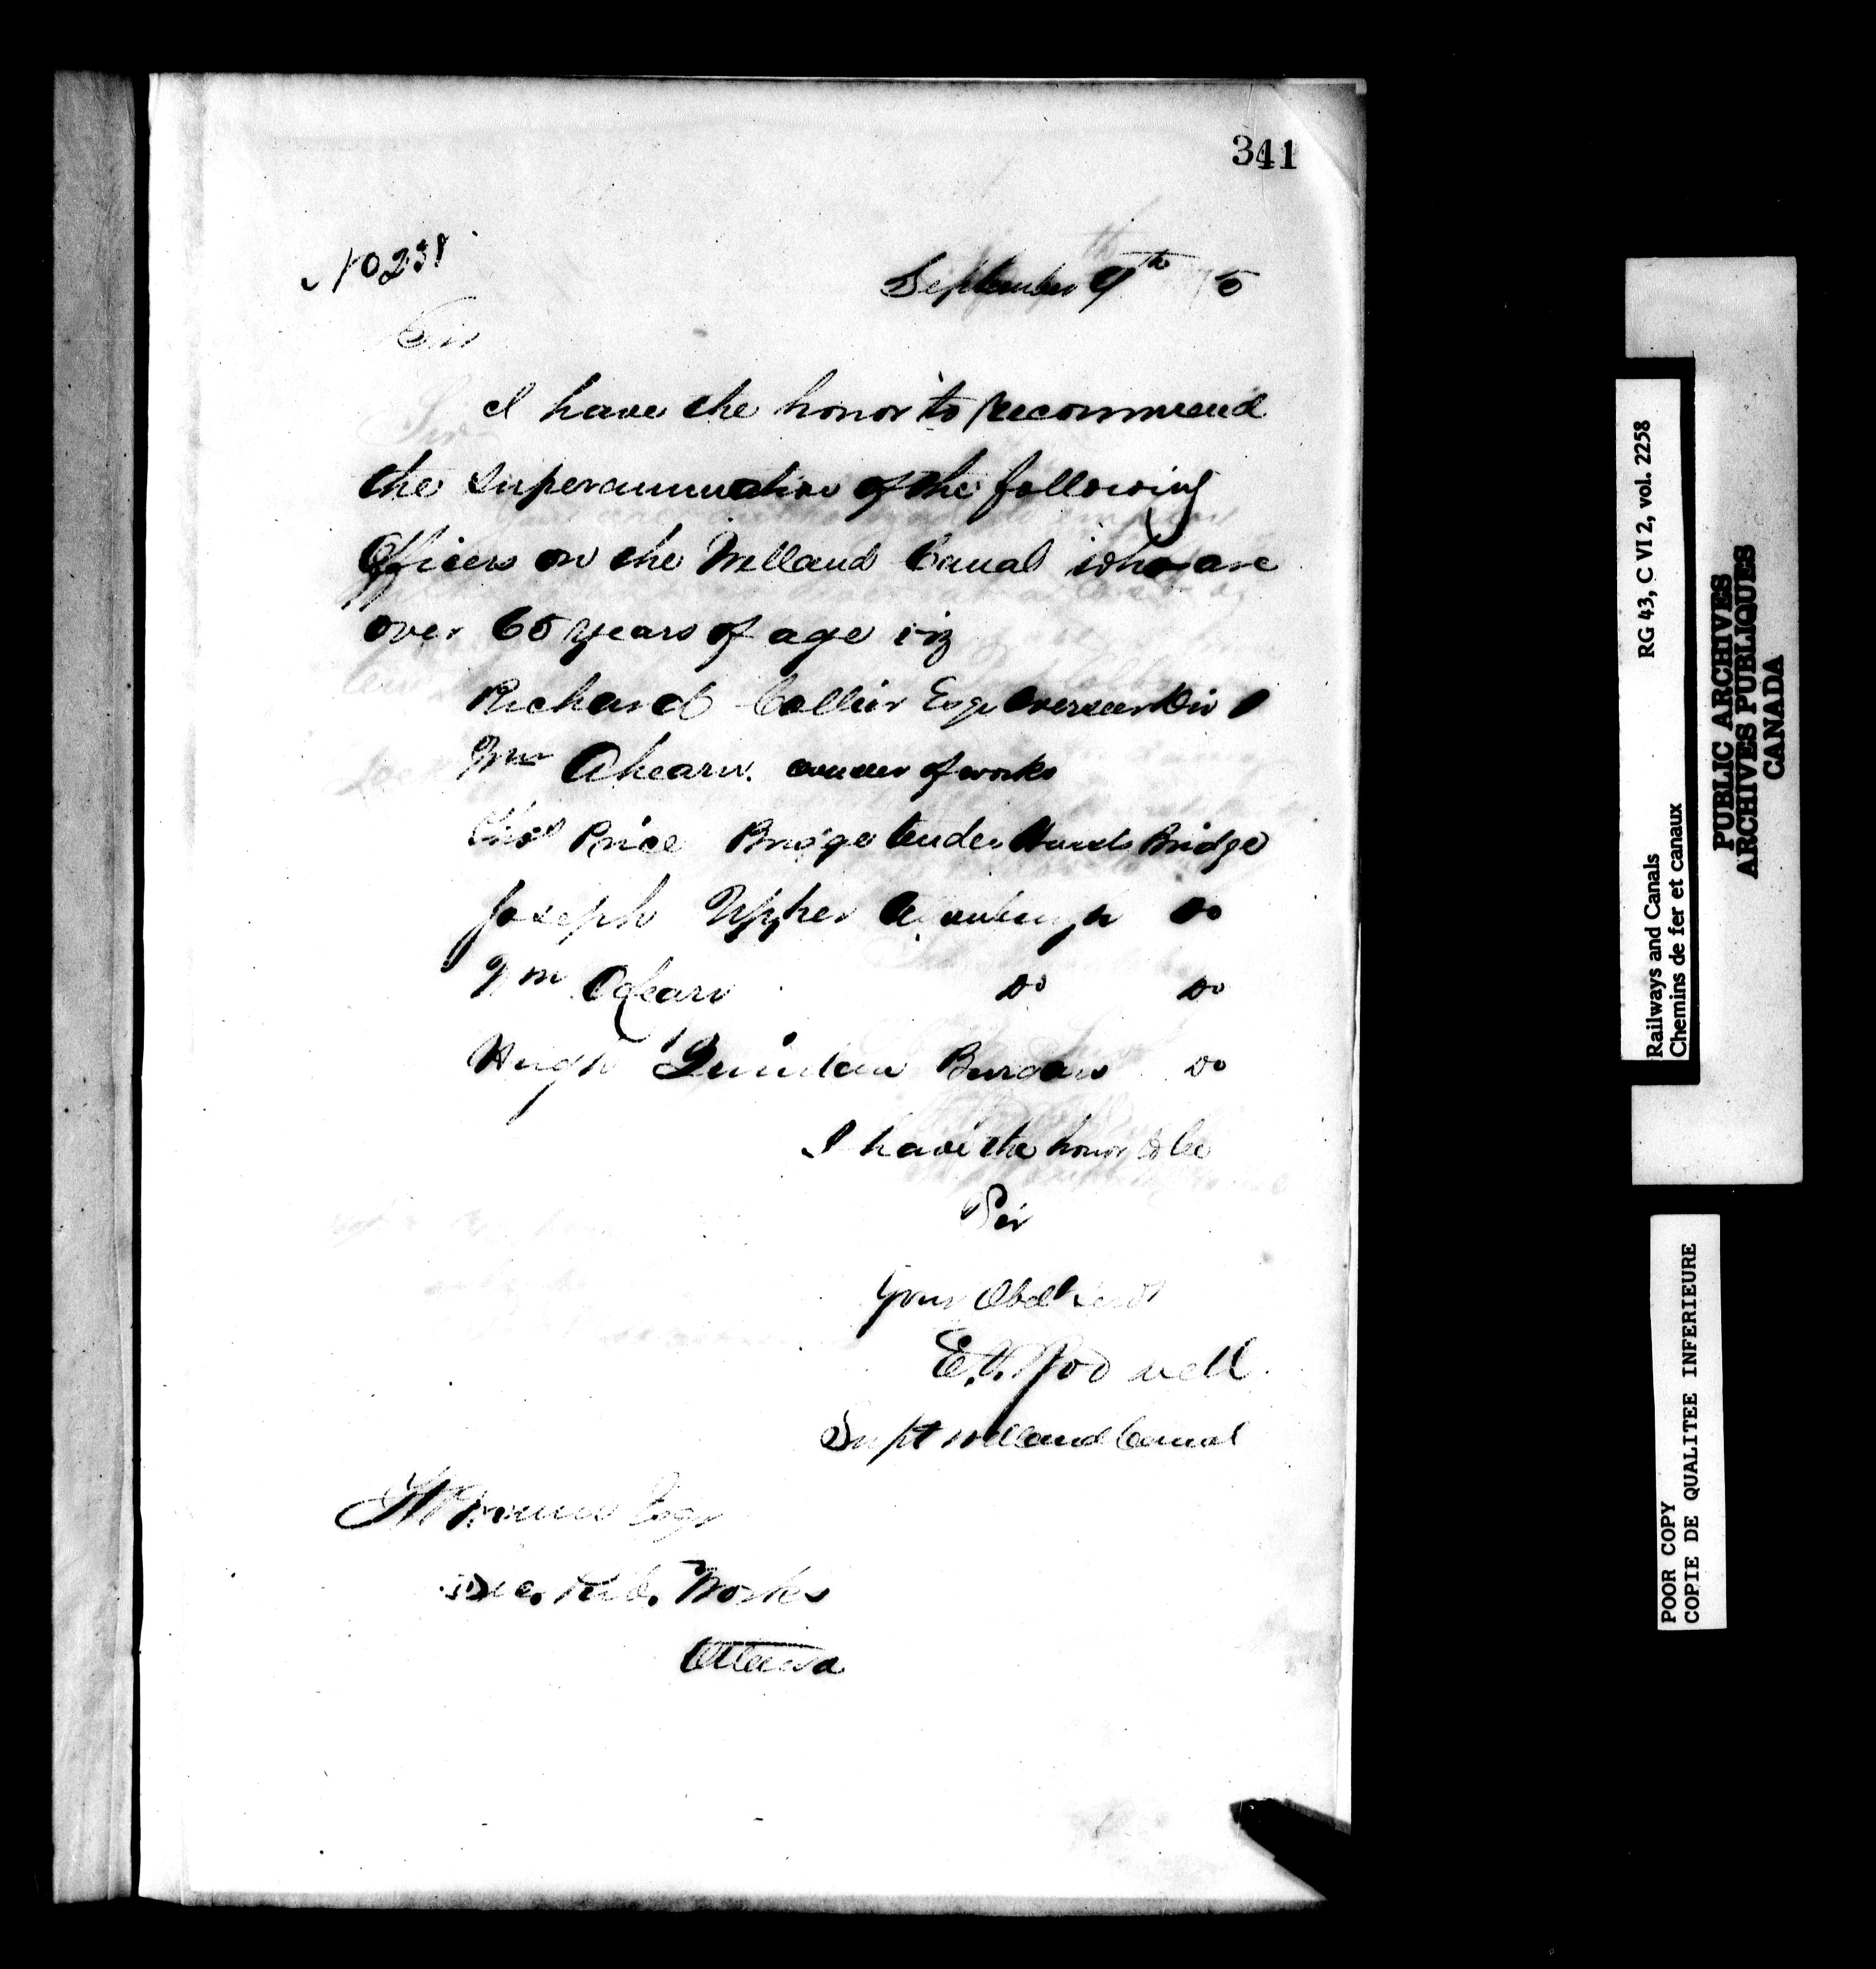 341
No 238
September 9th 75
Sir
I have the honor to recommend
the superannuation of the following
Officers on the Welland Canal who are
over 60 years of age viz
Richard Collier Esqr Overseer Div 1
Wm Ahearn. overseer of works
Thos Price Bridge tender Bridge
Joseph Upper Allanburgh Do
Wm Ahearn Do Do
Hugh Quinlan Do
I have the honor to be
Sir
Your Obedient
E.V. Bodwell
Supt Welland Canal
F Braun Esqr
Sec. Pub. Works
Ottawa
Railways and Canals RG 43, C VI 2, vol. 2258
Chemins de fer et canaux
PUBLIC ARCHIVES
ARCHIVES PUBLIQUES
CANADA
POOR COPY
COPIE DE QUALITEE INFERIEURE